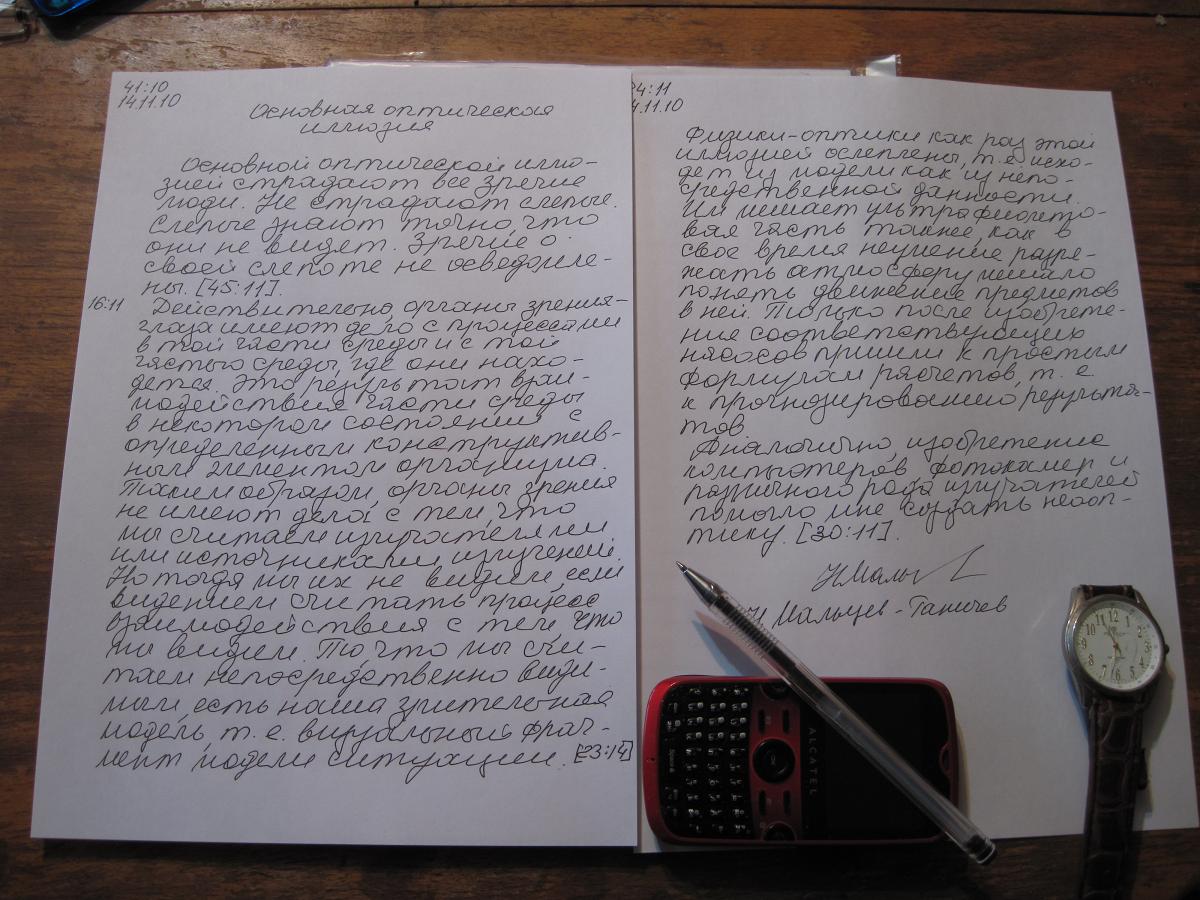 41:10
14.11.10
Основная оптическая
иллюзия
Основной оптической иллю-
зией страдают все зрячие
люди. Не страдают слепые.
Слепые знают точно, что
они не видят. Зрячие о
своей слепоте не осведомле-
ны. [45:11].
16:11 Действительно, органы зрения-
глаза имеют дело с процессами
в той части среды и с той
частью среды, где они нахо-
дятся. Это результат взаи-
модействия части среды
в некотором состоянии с
определенным конструктив-
ным элементом организма.
Таким образом, органы зрения
не имеют дела с тем что
мы считаем излучателями
или источниками излучений.
Но тогда мы их не видим, если
видением считать процесс
взаимодействия с тем что
мы видим. То что мы счи-
таем непосредственно види-
мым, есть наша зрительная
модель, т. е. визуальный фраг-
мент модели ситуации. [23:14]
24:11
4.11.10
Физики-оптики как раз этой
иллюзией ослеплены, т. е. исхо-
дят из модели как из непо-
средственной данности.
Им мешает ультрафиолето-
вая часть также, как в
свое время неумение разре-
жать атмосферу мешало
понять движение предметов
в ней. Только после изобрете-
ния соответствующих
насосов пришли к простым
формулам расчетов, т. е.
к прогнозированию результа-
тов.
Аналогично изобретение
компьютеров, фотокамер и
различного рода излучателей
помогло мне создать неооп-
тику. [30:11].
Н Мальцев-Таничев
ALCATEL
OK
12
1
2
3
4
5
6
7
8
9
10
11